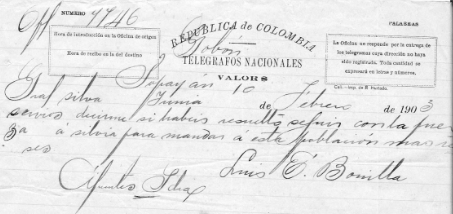 Off NUMERO 4746
PALABRAS
Hora de introducción en la Oficina de origen
Hora de recibo en la del destino
REPUBLICA de COLOMBIA
TELEGRAFOS NACIONALES
VALOR $
La Oficina no responde por la entrega de los telegramas cuya dirección no haya sido registrada. Toda cantidad se expresará en letras y números.
Popayán 10 de Febrero de 1903
Gral Silva
decirme si habeis resuelto seguir con la fuer
za a Silvia para mandar á esta población mas
Luis E. Bonilla